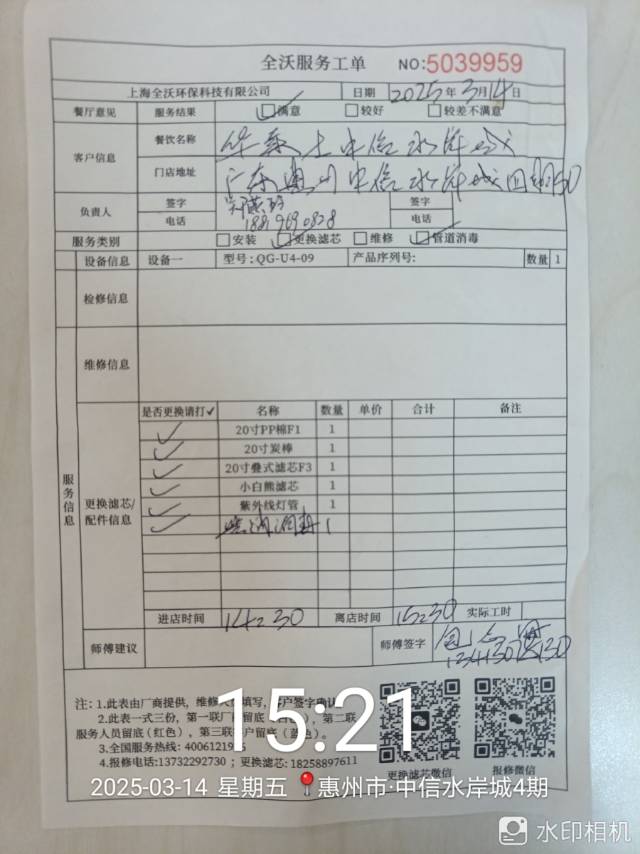 全沃服务工单 NO:5039959
上海全沃环保科技有限公司 日期 2025年3月14日
餐厅意见 服务结果 ☑满意 □较好 □较差不满意
客户信息 餐饮名称 华莱士中信水岸城
门店地址 广东惠州中信水岸城四期
负责人 签字 签字
电话 电话
服务类别 □安装 ☑更换滤芯 □维修 ☑管道消毒
设备信息 设备一 型号:QG-U4-09 产品序列号: 数量 1
检修信息
维修信息
服务信息
更换滤芯/配件信息
是否更换请打✓ 名称 数量 单价 合计 备注
✓ 20寸PP棉F1 1
✓ 20寸炭棒 1
✓ 20寸叠式滤芯F3 1
✓ 小白熊滤芯 1
✓ 紫外线灯管 1
✓ 1
进店时间 14:30 离店时间 15:30 实际工时
师傅建议 师傅签字
注:1.此表由厂商提供,维修人员填写,客户签字确认
2.此表一式三份,第一联厂商留底(白色),第二联
服务人员留底(红色),第三联客户留底(蓝色)。
3.全国服务热线:
4.报修电话:13732292730;更换滤芯:18258897611
更换滤芯微信 报修微信
15:21
2025-03-14 星期五 惠州市·中信水岸城4期
水印相机